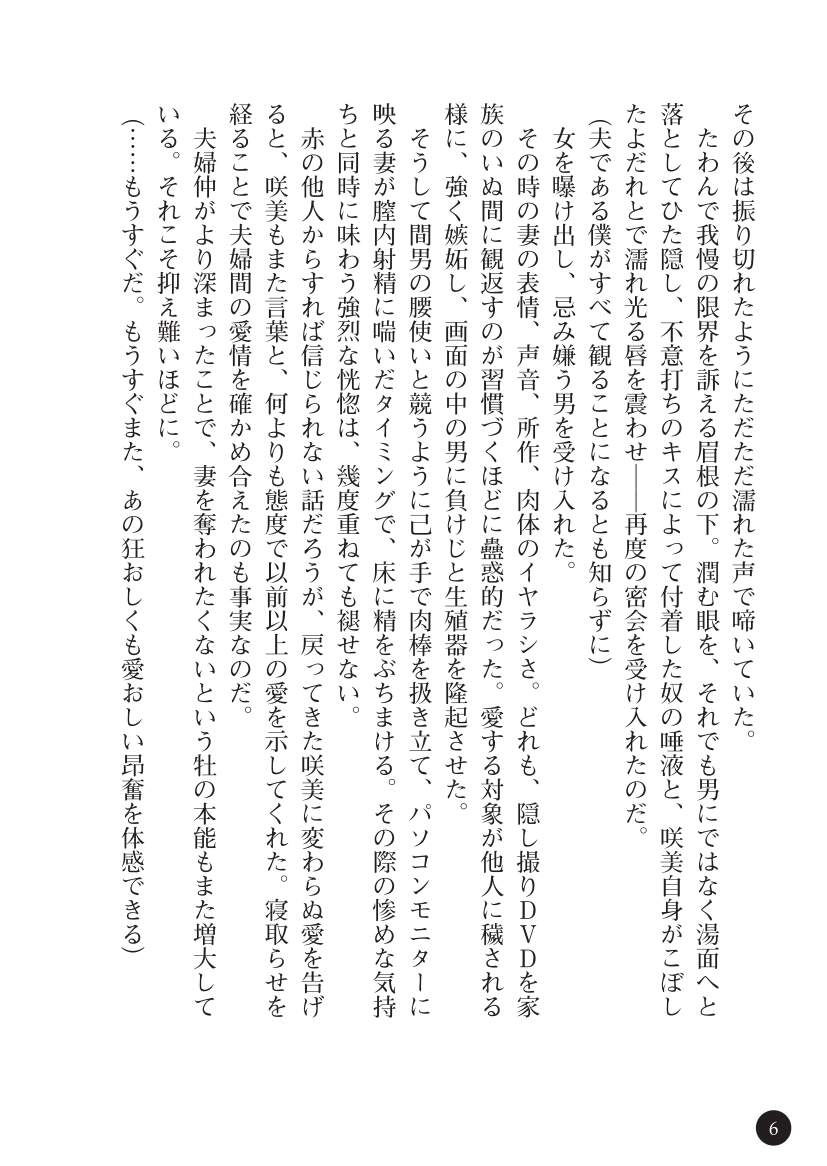 その後は振り切れたようにただただ濡れた声で啼いていた。
　たわんで我慢の限界を訴える眉根の下。潤む眼を、それでも男にではなく湯面へと
落としてひた隠し、不意打ちのキスによって付着した奴の唾液と、咲美自身がこぼし
たよだれとで濡れ光る唇を震わせ――再度の密会を受け入れたのだ。
（夫である僕がすべて観ることになるとも知らずに）
　女を曝け出し、忌み嫌う男を受け入れた。
　その時の妻の表情、声音、所作、肉体のイヤラシさ。どれも、隠し撮りＤＶＤを家
族のいぬ間に観返すのが習慣づくほどに蠱惑的だった。愛する対象が他人に穢される
様に、強く嫉妬し、画面の中の男に負けじと生殖器を隆起させた。
　そうして間男の腰使いと競うように己が手で肉棒を扱き立て、パソコンモニターに
映る妻が膣内射精に喘いだタイミングで、床に精をぶちまける。その際の惨めな気持
ちと同時に味わう強烈な恍惚は、幾度重ねても褪せない。
　赤の他人からすれば信じられない話だろうが、戻ってきた咲美に変わらぬ愛を告げ
ると、咲美もまた言葉と、何よりも態度で以前以上の愛を示してくれた。寝取らせを
経ることで夫婦間の愛情を確かめ合えたのも事実なのだ。
　夫婦仲がより深まったことで、妻を奪われたくないという牡の本能もまた増大して
いる。それこそ抑え難いほどに。
（……もうすぐだ。もうすぐまた、あの狂おしくも愛おしい昂奮を体感できる）
6